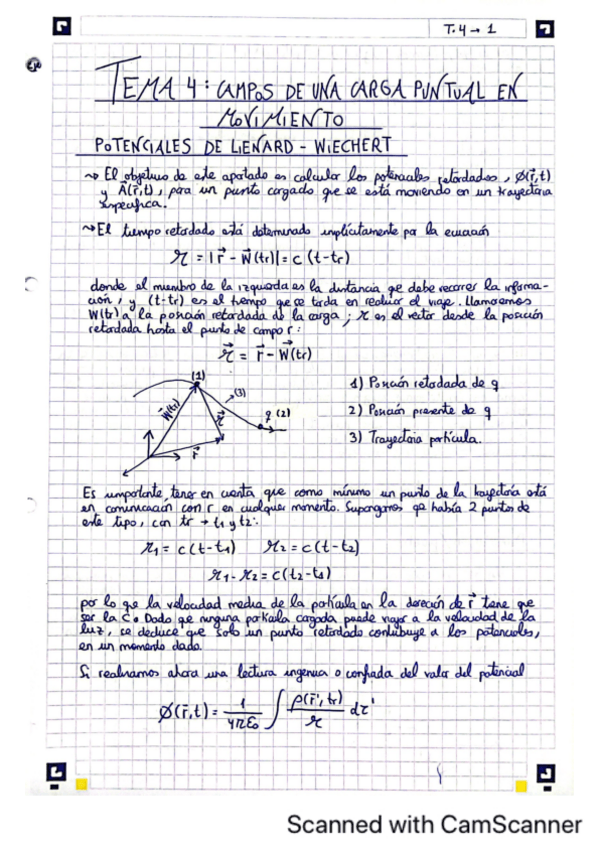 T.4 → 1
TEMA 4: CAMPOS DE UNA CARGA PUNTUAL EN
MOVIMIENTO
POTENCIALES DE LIENARD - WIECHERT
↝ El objetivo de este apartado es calcular los potenciales retardados, Ø(r⃗,t)
y A(r⃗,t), para un punto cargado que se está moviendo en un trayectoria
específica.
↝ El tiempo retardado está determinado implícitamente por la ecuación
r = |r⃗ - W⃗(tr)| = c (t-tr)
donde el miembro de la izquierda es la distancia que debe recorrer la informa-
ción, y (t-tr) es el tiempo que se tarda en realizar el viaje. Llamaremos
W(tr) a la posición retardada de la carga; r es el vector desde la posición
retardada hasta el punto de campo r:
r⃗ = r⃗ - W⃗(tr)
(1)
(3)
W⃗(tr)
r⃗
q (2)
r⃗
1) Posición retardada de q
2) Posición presente de q
3) Trayectoria partícula.
Es importante, tener en cuenta que como mínimo un punto de la trayectoria está
en comunicación con r en cualquier momento. Supongamos que había 2 puntos de
este tipo, con tr → t1 y t2:
r1 = c(t-t1) r2 = c(t-t2)
r1 - r2 = c(t2-t1)
por lo que la velocidad media de la partícula en la dirección de r⃗ tiene que
ser la c. Dado que ninguna partícula cargada puede viajar a la velocidad de la
luz, se deduce que solo un punto retardado contribuye a los potenciales,
en un momento dado.
Si realizamos ahora una lectura ingenua o confiada del valor del potencial
Ø(r⃗,t) = 1/4πε0 ∫ ρ(r⃗', tr)/r dτ'
Scanned with CamScanner